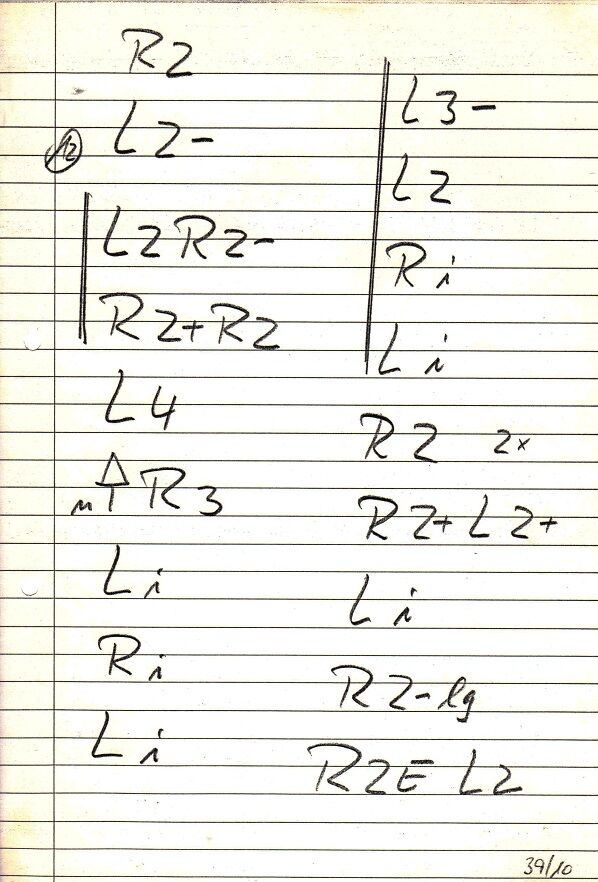 R2
12
L2-
L2R2-
R2+R2
L4
R3
Li
Ri
Li
L3-
L2
Ri
Li
R2 2x
R2+L2+
Li
R2-lg
R2E L2
39/10